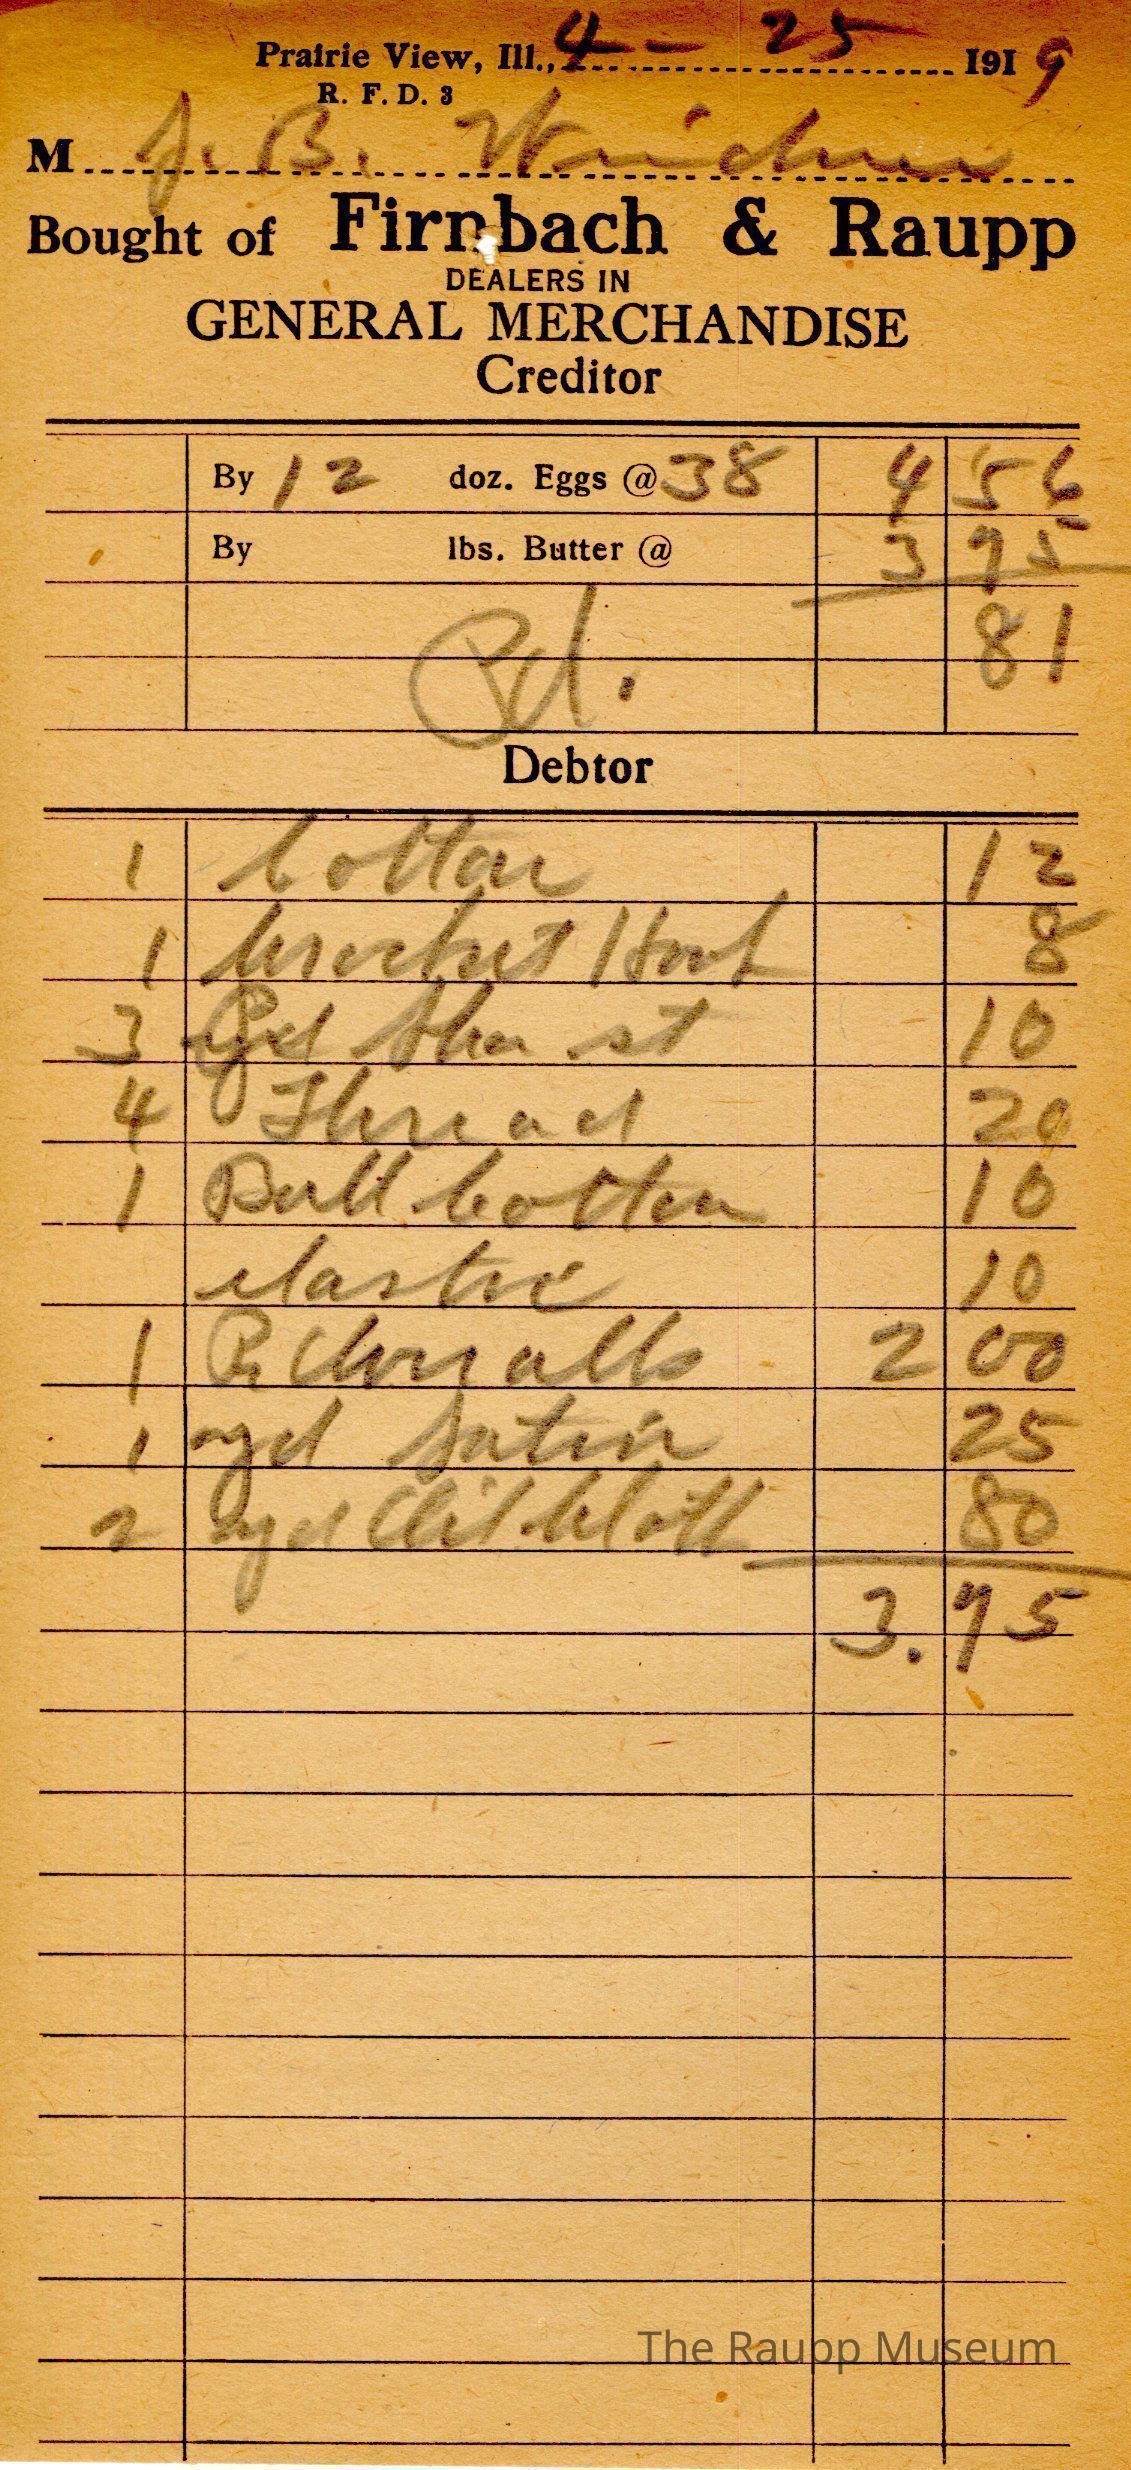 Prairie View, Ill., 4 - 25 1919
R. F. D. 3
M J. B.
Bought of Firnbach & Raupp
DEALERS IN
GENERAL MERCHANDISE
Creditor
By 12 doz. Eggs @ 38 4 56
By lbs. Butter @ 3 75
81
Pd.
Debtor
1 Cotton 12
1 Crochet Hook 8
3 10
4 Thread 20
1 Ball Cotton 10
elastic 10
1 Pr Overalls 2 00
1 yd Satin 25
2 yd Oil Cloth 80
3.75
The Raupp Museum